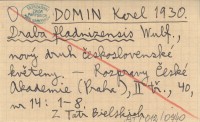 DOMIN Karel 1930.
Draba fladnizensis Wulf.,
nový druh československé
květeny. — Rozpravy České
Akademie (Praha), II tř., 40,
nr 14: 1-8
Z Tatr Bielskich